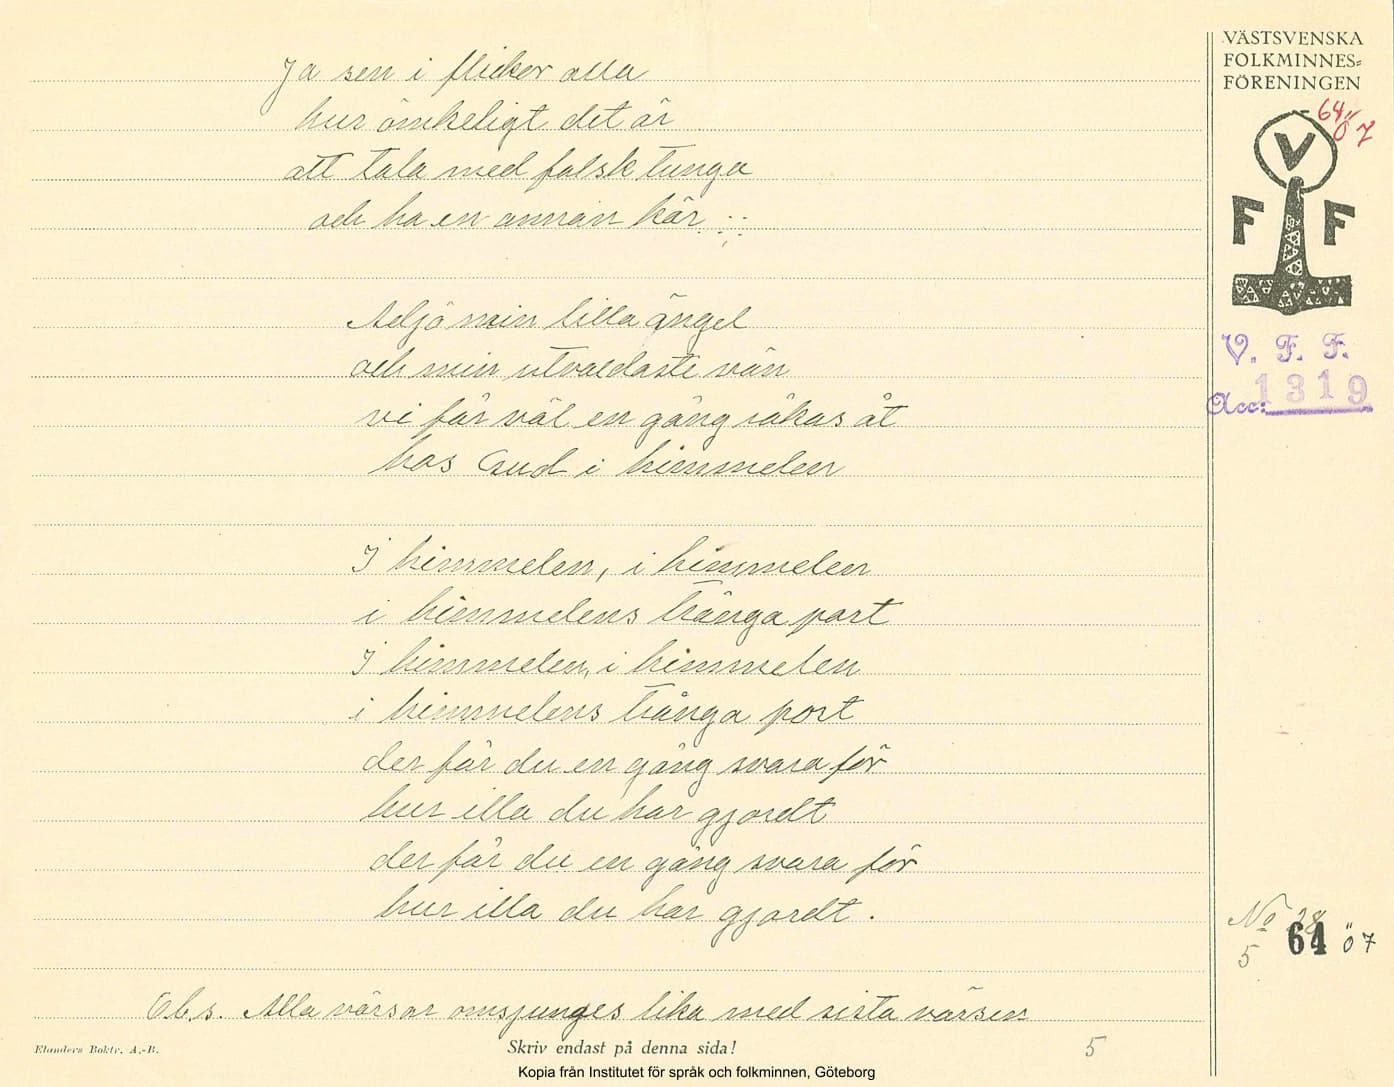 Ja sen i flickor alla
hur ömkeligt det är
att tala med falsk tunga
och ha en annan kär :;:
Adjö min lilla ängel
och min utvaldaste vän
vi får väl en gång råkas åt
hos Gud i himmelen
I himmelen, i himmelen
i himmelens trånga port
I himmelen, i himmelen
i himmelens trånga port
der får du en gång svara för
hur illa du har gjordt
der får du en gång svara för
hur illa du har gjordt.
Obs. Alla värsar omsjunges lika med sista värsen
Elanders Boktr. A.-B.
Skriv endast på denna sida!
5
Kopia från Institutet för språk och folkminnen, Göteborg
VÄSTSVENSKA
FOLKMINNES-
FÖRENINGEN
64 Ö 7
V
F F
V. F. F.
Acc: 1319
No 28
5 64 Ö 7